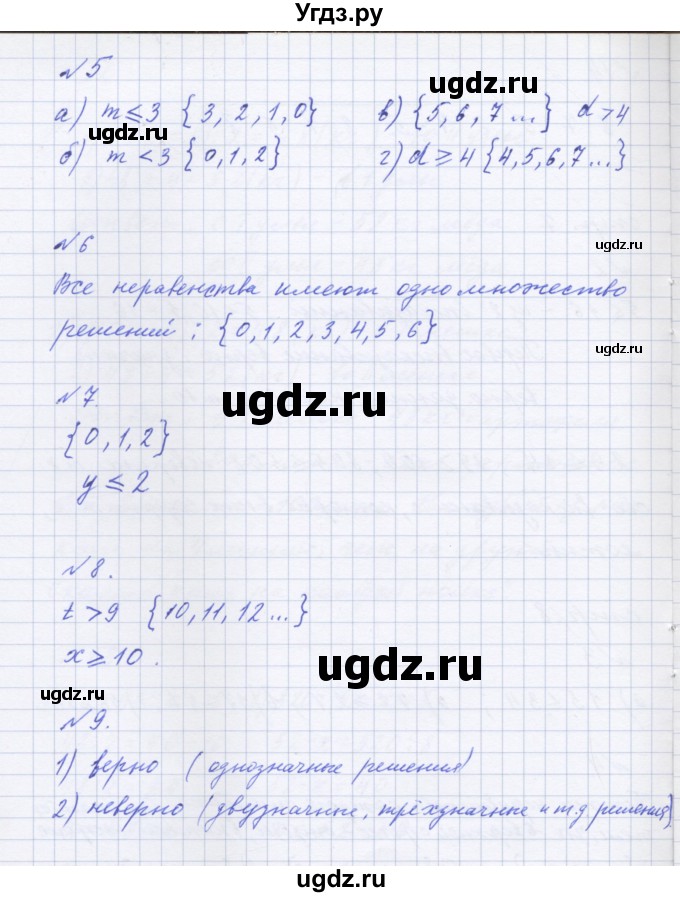 Угдз.ру
№5
а) m ≤ 3 {3, 2, 1, 0} в) {5, 6, 7 ...} d > 4
б) m < 3 {0, 1, 2} г) d ≥ 4 {4, 5, 6, 7 ...}
№6
Все неравенства имеют одно множество
решений: {0, 1, 2, 3, 4, 5, 6}
№7.
{0, 1, 2}
y ≤ 2
№8.
t > 9 {10, 11, 12 ...}
x ≥ 10.
№9.
1) верно (однозначные решения)
2) неверно (двузначные, трёхзначные и т.д решения)
ugdz.ru
ugdz.ru
ugdz.ru
ugdz.ru
ugdz.ru
ugdz.ru
ugdz.ru
ugdz.ru
ugdz.ru